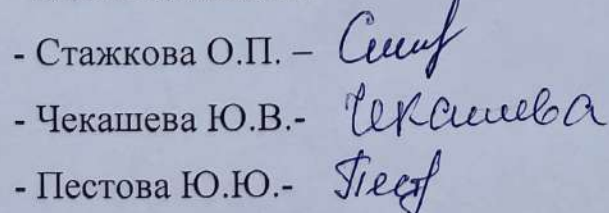 - Стажкова О.П. –
- Чекашева Ю.В.- Чекашева
- Пестова Ю.Ю.- Пест